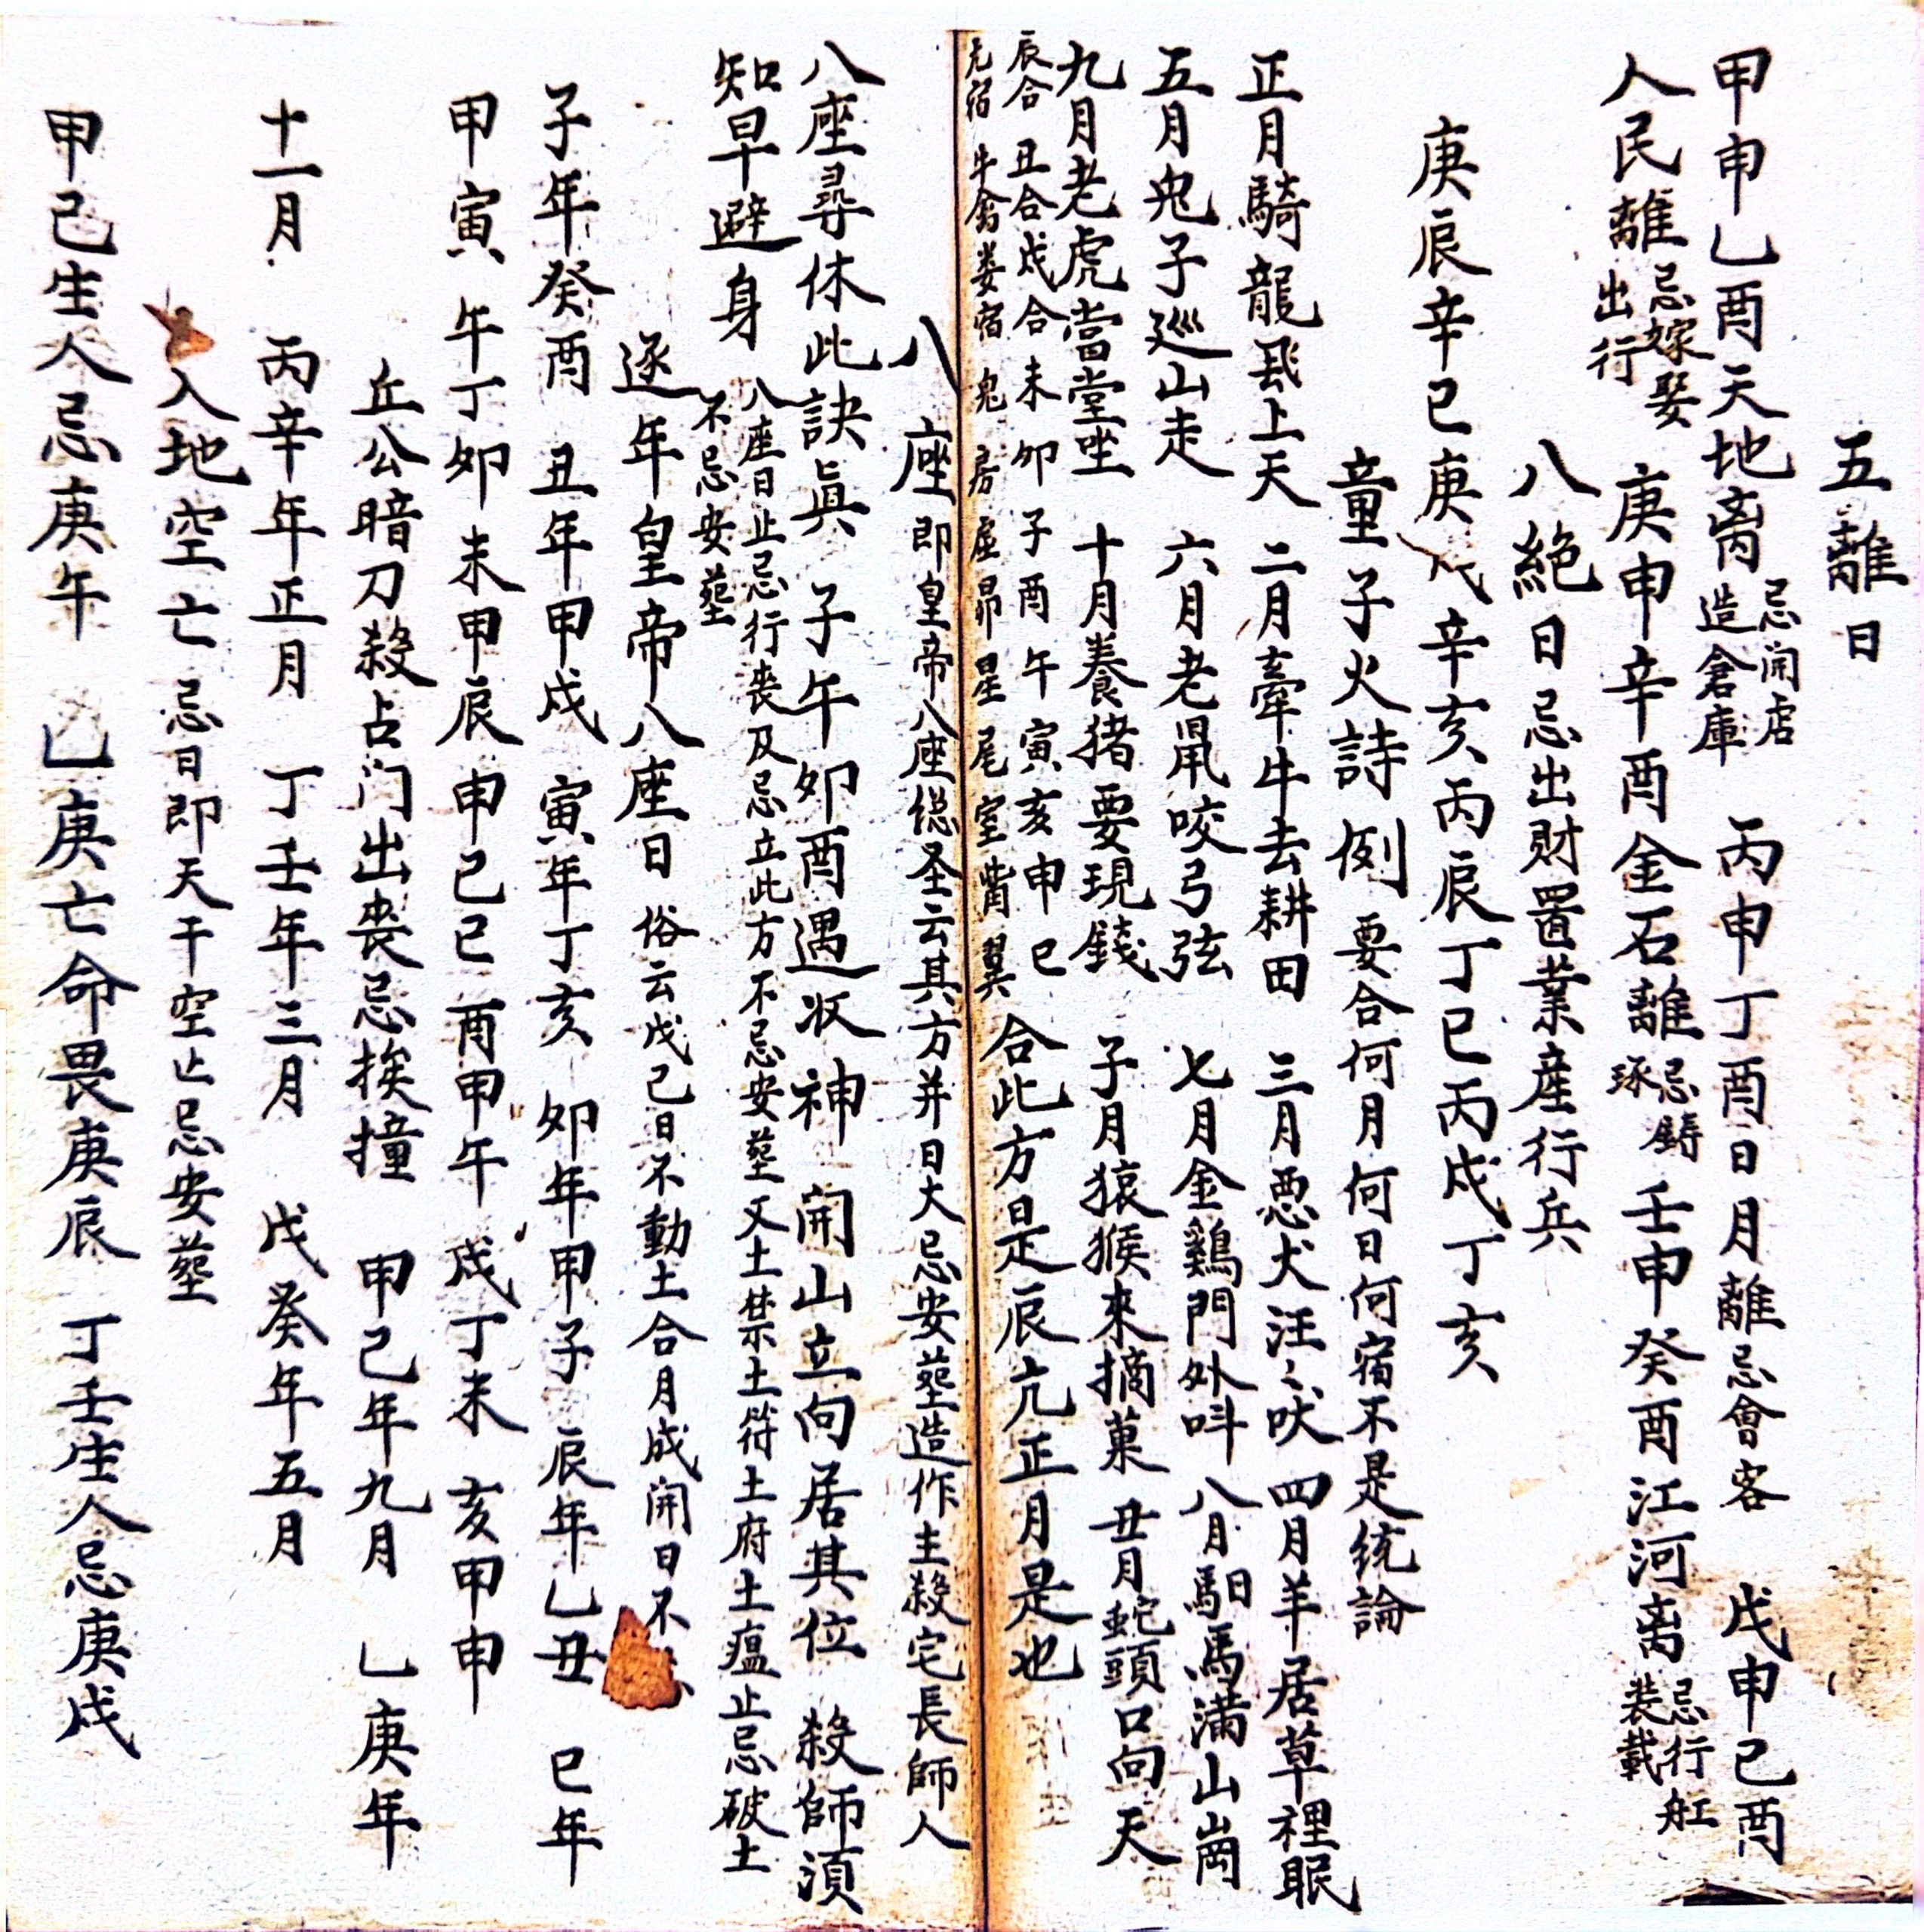 五離日
甲申乙酉天地离忌開店造倉庫 丙申丁酉日月離忌會客 戊申己酉
人民離忌嫁娶出行 庚申辛酉金石離忌鑄琢 壬申癸酉江河离忌行舡裝載
八絕日忌出財置業産行兵
庚辰辛巳庚戌辛亥丙辰丁巳丙戌丁亥
童子火詩例 要合何月何日何宿不是统論
正月騎龍飛上天 二月牽牛去耕田 三月恶犬汪々吠 四月羊居草裡眠
五月兎子巡山走 六月老鼠咬弓弦 七月金鷄門外呌 八月日馬馬满山崗
九月老虎當堂坐 十月養猪要現錢 子月猿猴來摘菓 丑月蛇頭口向天
辰合 丑合戌合未 卯 子酉午寅亥申巳
亢宿 牛禽娄宿 鬼 房 虚昴星尾室觜翼 合此方是辰亢正月是也
八座 即皇帝八座総圣云其方并日大忌安葬造作主殺宅長師人
八座尋休此訣眞 子午卯酉遇收神 開山立向居其位 殺師須
知早避身 八座日止忌行喪及忌立此方不忌安葬又土禁土符土府土瘟止忌破土不忌安葬
逐年皇帝八座日 俗云戊己日不動土合月成開日不
子年癸酉 丑年甲戌 寅年丁亥 卯年甲子 辰年乙丑 巳年
甲寅 午丁卯 未甲辰 申己巳 酉甲午 戌丁未 亥甲申
丘公暗刀殺占门出丧忌挨撞 甲己年九月 乙庚年
十一月 丙辛年正月 丁壬年三月 戊癸年五月
入地空亡 忌日即天干空止忌安葬
甲己生人忌庚午 乙庚亡命畏庚辰 丁壬生人忌庚戌